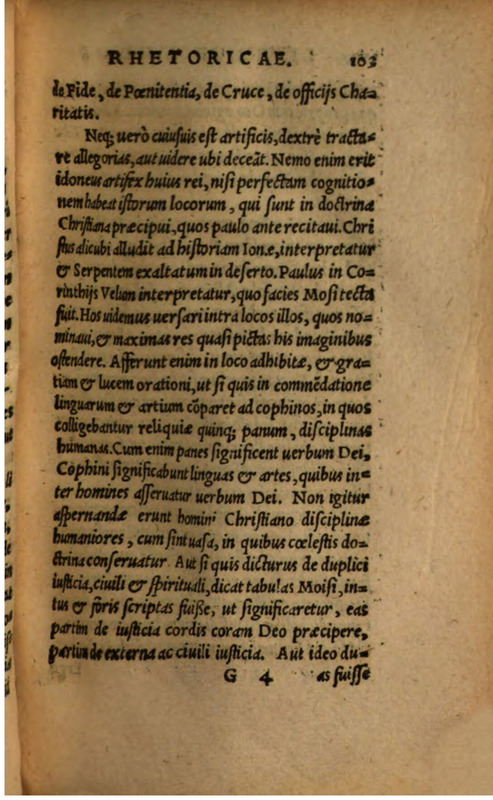 RHETORICAE. 103
de Fide, de Pœnitentia, de Cruce, de officijs Cha-
ritatis.
Neq; uerò cuiusuis est artificis, dextrè tracta-
re allegorias, aut uidere ubi deceãt. Nemo enim erit
idoneus artifex huius rei, nisi perfectam cognitio-
nem habeat istorum locorum, qui sunt in doctrina
Christiana præcipui, quos paulo ante recitaui. Chri
stus alicubi alludit ad historiam Ionæ, interpretatur
& Serpentem exaltatum in deserto. Paulus in Co-
rinthijs Velum interpretatur, quo facies Mosi tecta
fuit. Hos uidemus uersari intra locos illos, quos no-
minaui, & maximas res quasi pictas his imaginibus
ostendere. Afferunt enim in loco adhibitæ, & gra-
tiam & lucem orationi, ut si quis in commẽdatione
linguarum & artium cõparet ad cophinos, in quos
colligebantur reliquiæ quinq; panum, disciplinas
humanas. Cum enim panes significent uerbum Dei,
Cophini significabunt linguas & artes, quibus in-
ter homines asseruatur uerbum Dei. Non igitur
aspernandæ erunt homini Christiano disciplinæ
humaniores, cum sint uasa, in quibus cœlestis do-
ctrina conseruatur. Aut si quis dicturus de duplici
iusticia, ciuili & spirituali, dicat tabulas Moisi, in-
tus & foris scriptas fuisse, ut significaretur, eas
partim de iusticia cordis coram Deo præcipere,
partim de externa ac ciuili iusticia. Aut ideo du-
G 4 as fuisse